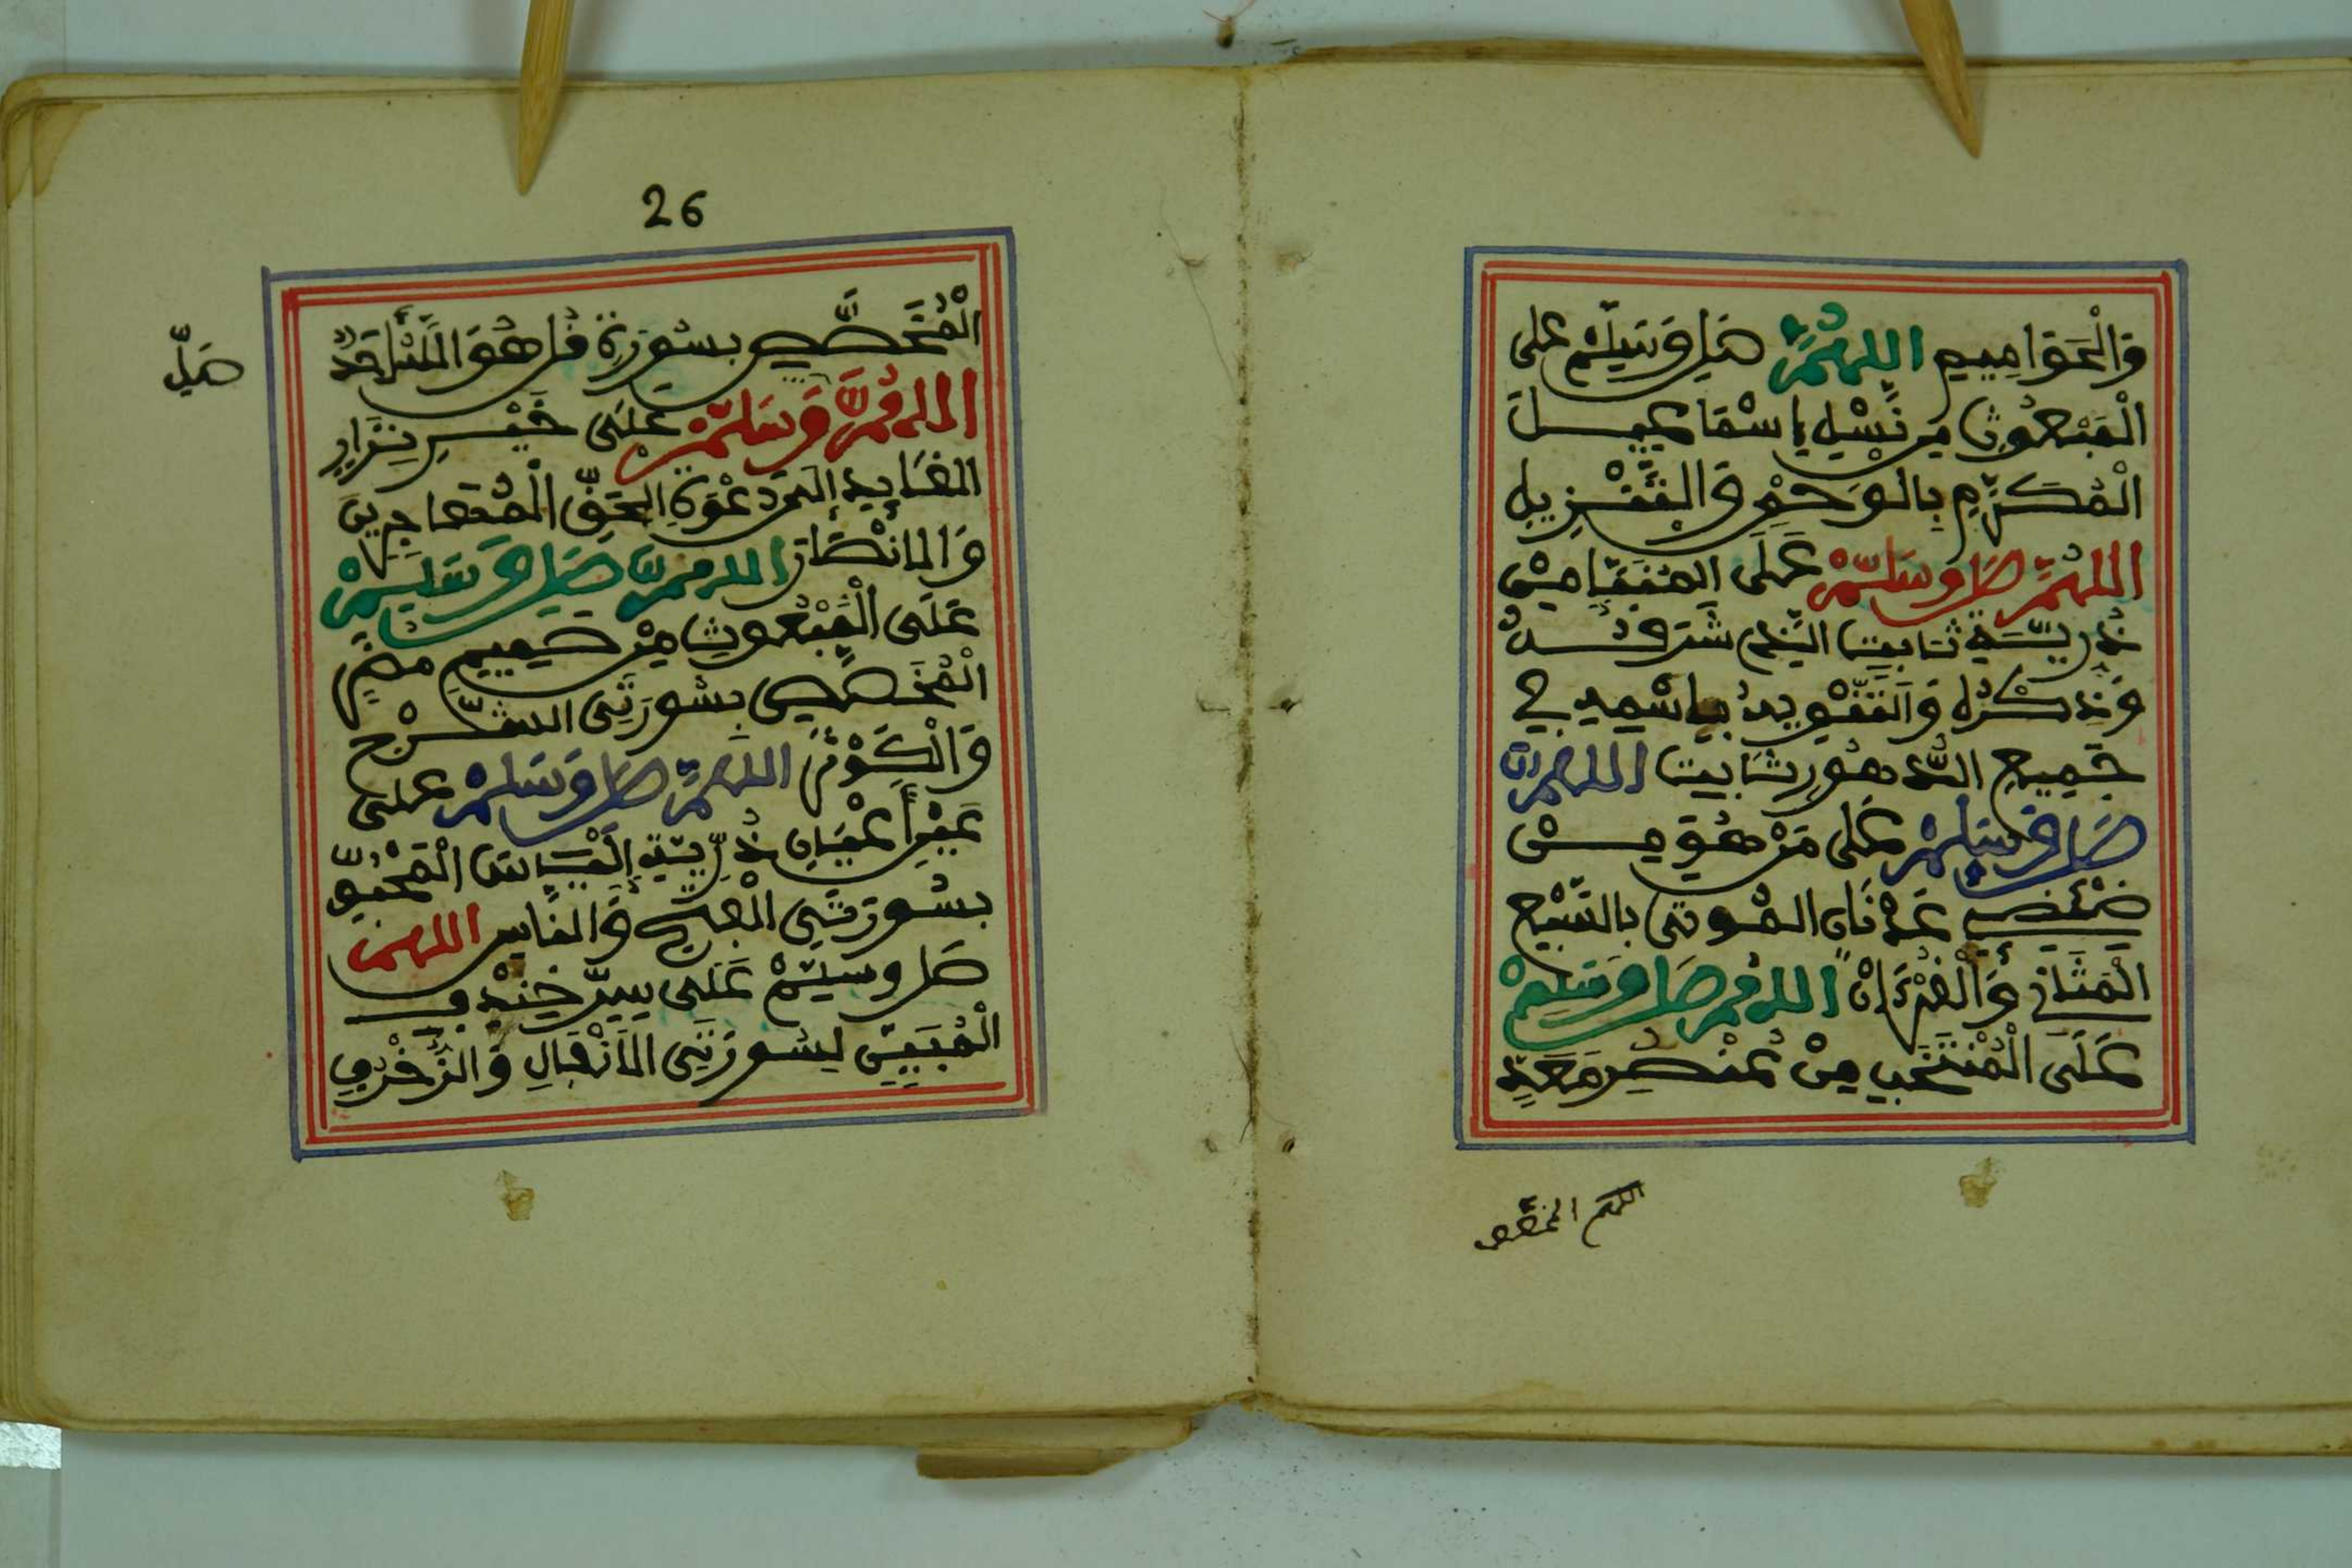 وَالْحَوَامِيمِ اللهُمَّ صَلِّ وَسَلِّمْ عَلى
الْمَبْعُوثِ مِن نَسْلِ إِسْمَاعِيلَ
الْمُكَرَّمِ بِالْوَحْيِ وَالتَّنْزِيلِ
اللهُمَّ صَلِّ وَسَلِّمْ عَلَى الْمُنتَقَا مِنْ
ذُرِّيَّةِ ثَابِتِ الَّذِي شَرَفُهُ
وَذِكْرُهُ وَالتَّنْوِيهُ بِاسْمِهِ فِي
جَمِيعِ الدُّهُورِ ثَابِت اللهُمَّ
صَلِّ وَسَلِّمْ عَلَى مَنْ هُوَ مِن
ضِئْضِي عَدْنَان الْمُوتَى بِالسَّبْعِ
الْمَثَانِي وَالْقُرْءَانْ اللهُمَّ صَلِّ وَسَلِّمْ
عَلَى الْمُنْتَخَبِ مِنْ عُنْصُرِ مَعَدٍّ
اللهم المخصص
26
الْمُخَصَّصِ بِسُورَةِ قُلْ هُوَ اللَّهُ أَحَدٌ
صَلِّ
اللهُمَّ وَسَلِّمْ عَلَى خَيْرِ نِزَارٍ
الْقَايِدِ إِلَى دَعْوَةِ الْحَقِّ الْمُهَاجِرِينَ
وَالْأَنْصَارِ اللهُمَّ صَلِّ وَسَلِّمْ
عَلَى الْمَبْعُوثِ مِنْ صَمِيمِ مُضَرٍ
الْمُخَصَّصِ بِسُورَتَيِ الشَّرْحِ
وَالْكَوْثَرِ اللهُمَّ صَلِّ وَسَلِّمْ عَلى
عَيْنِ أَعْيَانِ ذُرِّيَّةِ إِلْيَاسَ الْمَحْبُوِّ
بِسُورَتَيِ الْفَلَقِ وَالنَّاسِ اللهم
صَلِّ وَسَلِّمْ عَلَى سِرِّ خِنْدِف
الْمُبَيِّنِ لِسُورَتَيِ الْأَنْفَالِ وَالزُّخْرُفِ